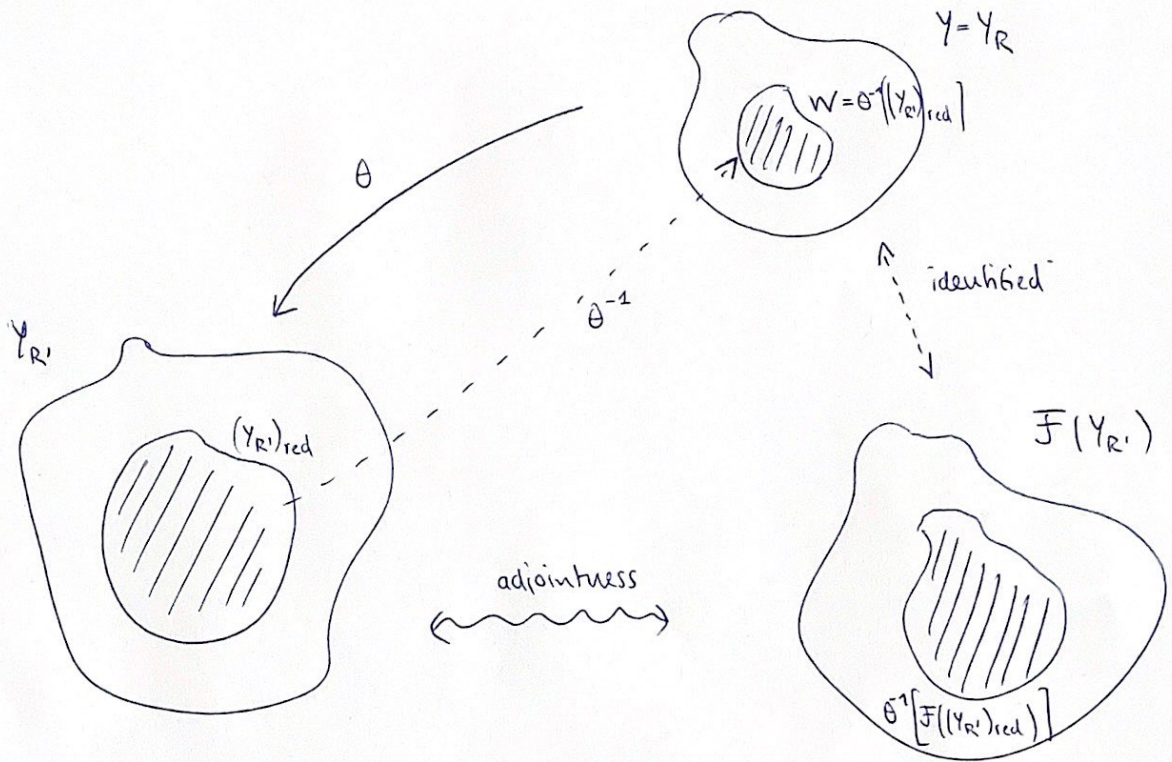 Y = Y_R
W = θ⁻¹[(Y_R')_red]
θ
θ⁻¹
"identified"
Y_R'
(Y_R')_red
F(Y_R')
adjointness
θ⁻¹[F((Y_R')_red)]